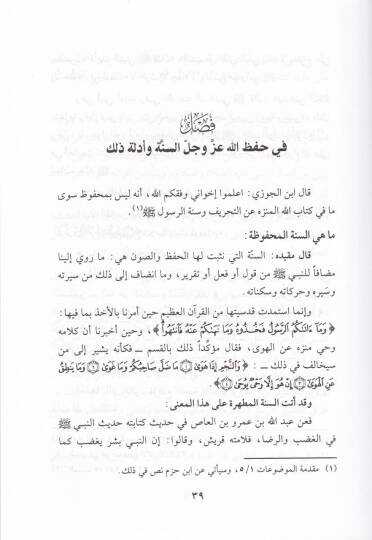 فَصْلٌ
في حفظ الله عزّ وجلّ السنّة وأدلة ذلك
قال ابن الجوزي: اعلموا إخواني وفقكم الله، أنه ليس بمحفوظ سوى
ما في كتاب الله المنزه عن التحريف وسنة الرسول ﷺ(١).
ما هي السنة المحفوظة:
قال مقيده: السنّة التي نثبت لها الحفظ والصون هي: ما روي إلينا
مضافاً للنبي ﷺ من قول أو فعل أو تقرير، وما انضاف إلى ذلك من سيرته
وسَيره وحركاته وسكناته.
وإنما استمدت قدسيتها من القرآن العظيم حين أمرنا بالأخذ بما فيها:
﴿وَمَآ ءَاتَىٰكُمُ ٱلرَّسُولُ فَخُذُوهُ وَمَا نَهَىٰكُمْ عَنْهُ فَٱنتَهُوا۟﴾، وحين أخبرنا أن كلامه
وحي منزه عن الهوى، فقال مؤكّداً ذلك بالقسم ــ فكأنه يشير إلى من
سيخالف في ذلك ــ : ﴿وَٱلنَّجْمِ إِذَا هَوَىٰ ۝ مَا ضَلَّ صَاحِبُكُمْ وَمَا غَوَىٰ ۝ وَمَا يَنطِقُ
عَنِ ٱلْهَوَىٰٓ ۝ إِنْ هُوَ إِلَّا وَحْىٌ يُوحَىٰ ۝﴾.
وقد أتت السنة المطهرة على هذا المعنى:
فعن عبد الله بن عمرو بن العاص في حديث كتابته حديث النبي ﷺ
في الغضب والرضا، فلامته قريش، وقالوا: إن النبي بشر يغضب كما
(١) مقدمة الموضوعات ٥/١، وسيأتي عن ابن حزم نص في ذلك.
٣٩